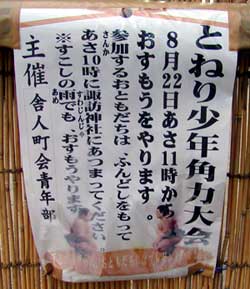 とねり少年角力大会
8月22日あさ11時から
おすもうをやります。
参加するおともだちは、ふんどしをもって
あさ10時に諏訪神社にあつまってください。
※すこしの雨でも、おすもうやります
主催 舎人町会青年部
さんか
すわじんじゃ
あめ